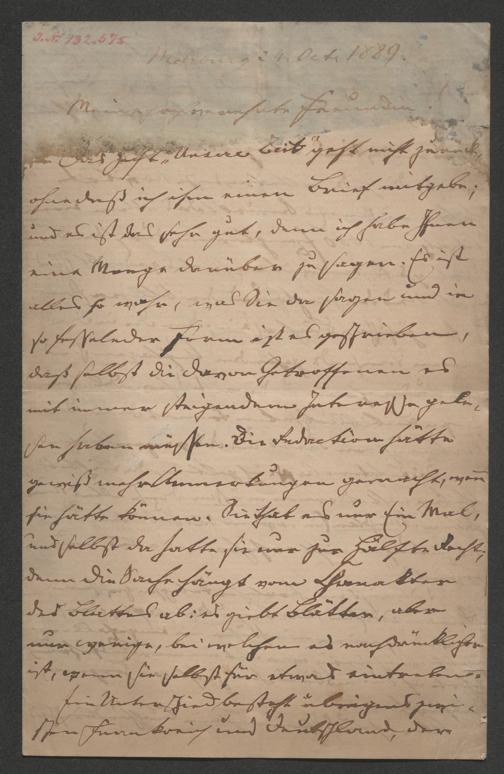 J.N. 132.575
24. Oct. 1889.
Meine hochverehrte Freundin!
Das Heft „Unsere Zeit" geht nicht zurück,
ohne daß ich ihm einen Brief mitgebe;
und es ist das sehr gut, denn ich habe Ihnen
eine Menge darüber zu sagen. Es ist
alles so wahr, was Sie da sagen und in
so fesselnder Form ist es geschrieben,
daß selbst die davon Getroffenen es
mit immer steigendem Interesse gele-
sen haben müssen. Die Redaction hätte
gewiß mehr Anmerkungen gemacht, wenn
sie hätte können. Sie that es nur Ein Mal,
und selbst da hatte sie nur zur Hälfte Recht,
denn die Sache hängt vom Charakter
des Blattes ab: es giebt Blätter, aber
nur wenige, bei welchen es nachdrücklicher
ist, wenn sie selbst für etwas eintreten.
Ein Unterschied besteht übrigens zwi-
schen Frankreich und Deutschland, der